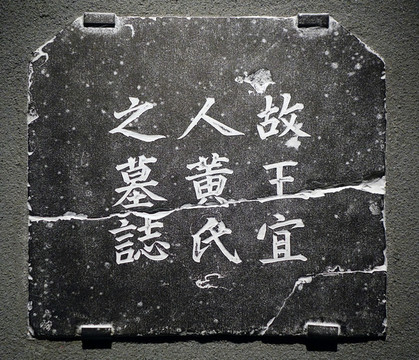 故王宜
人黄氏
之墓誌